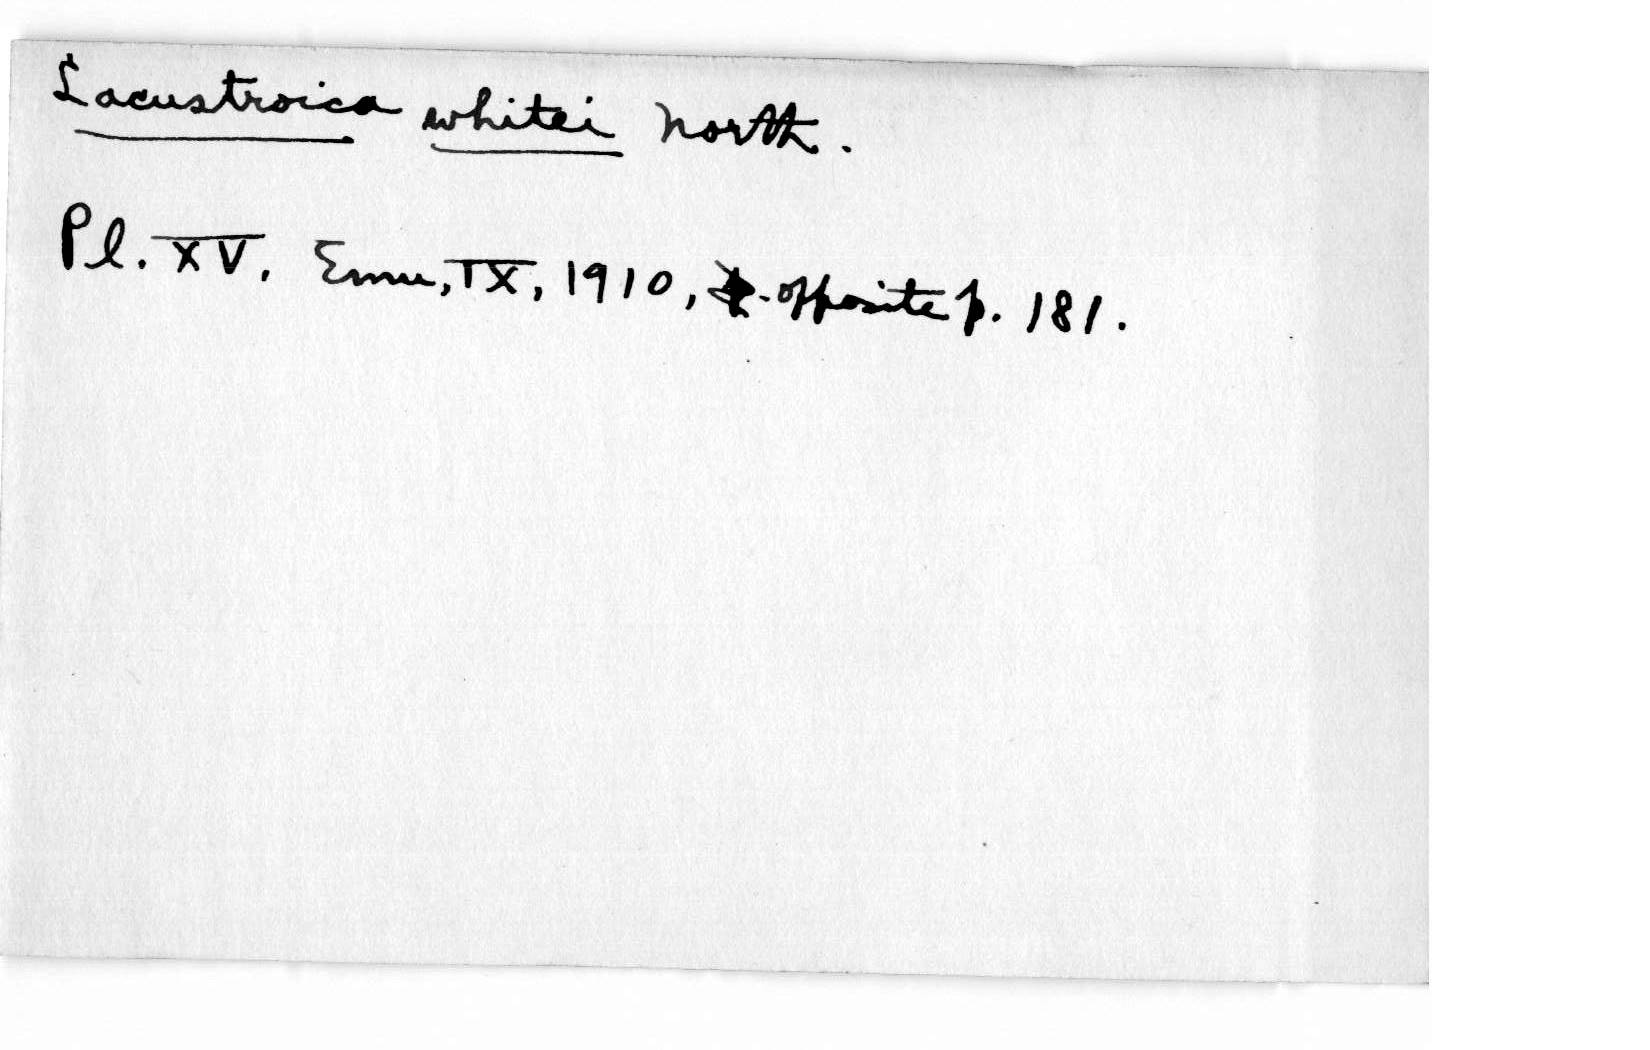 Lacustroica whitei North.
Pl. XV. Emu, IX, 1910, opposite p. 181.